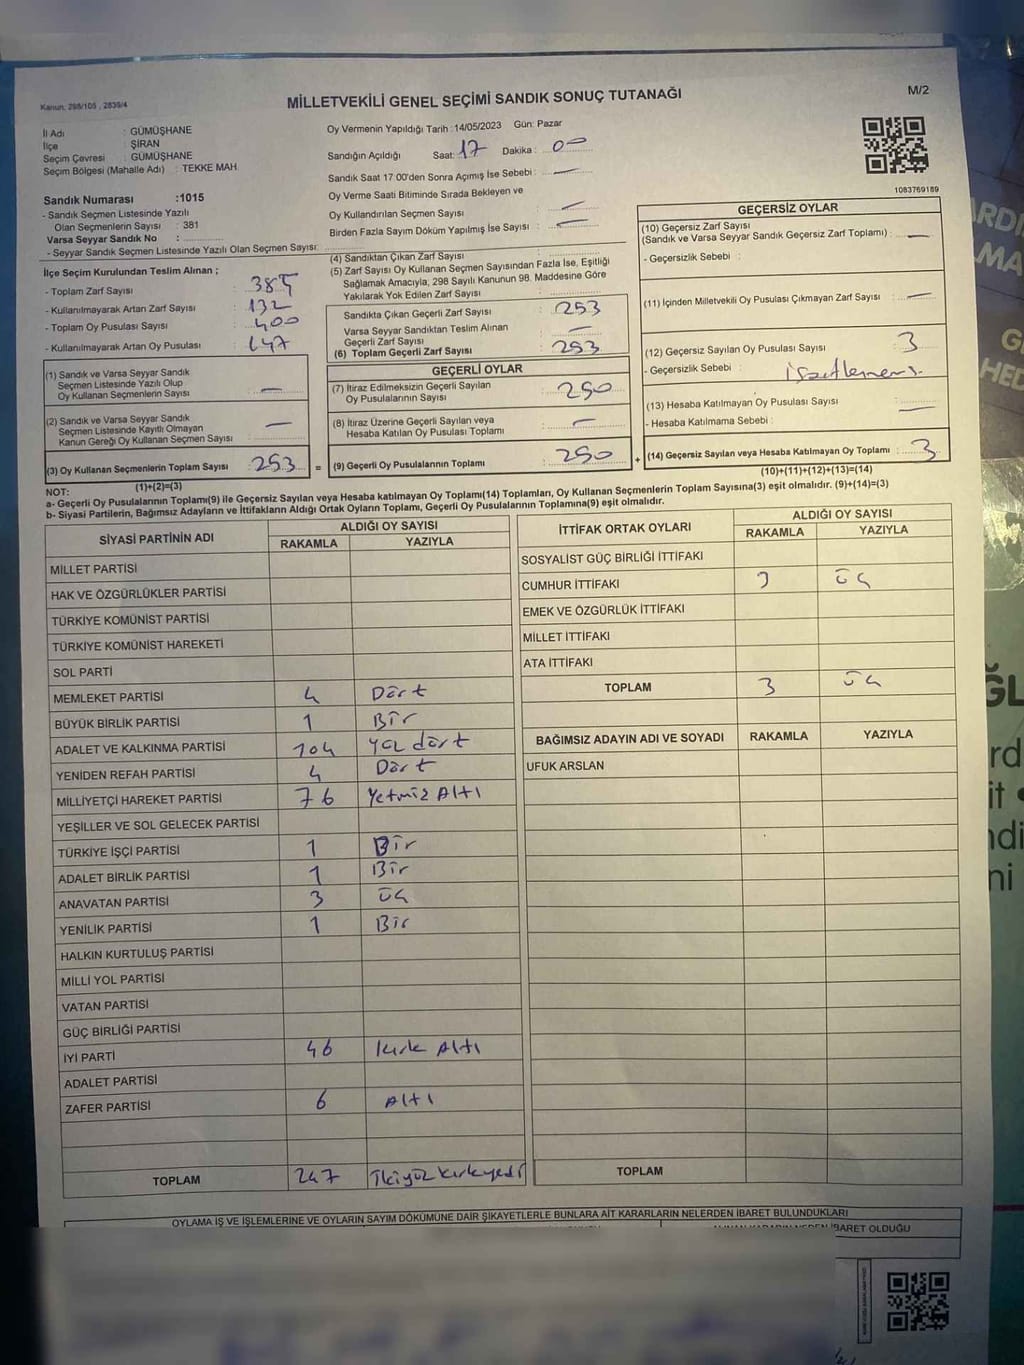 Kanun, 298/105 , 2839/4
MİLLETVEKİLİ GENEL SEÇİMİ SANDIK SONUÇ TUTANAĞI
M/2
İl Adı : GÜMÜŞHANE
İlçe : ŞİRAN
Seçim Çevresi : GÜMÜŞHANE
Seçim Bölgesi (Mahalle Adı) : TEKKE MAH.
Sandık Numarası :1015
- Sandık Seçmen Listesinde Yazılı
Olan Seçmenlerin Sayısı : 381
Varsa Seyyar Sandık No :
- Seyyar Sandık Seçmen Listesinde Yazılı Olan Seçmen Sayısı:
İlçe Seçim Kurulundan Teslim Alınan ;
- Toplam Zarf Sayısı : 385
- Kullanılmayarak Artan Zarf Sayısı : 132
- Toplam Oy Pusulası Sayısı : 400
- Kullanılmayarak Artan Oy Pusulası : 147
(1) Sandık ve Varsa Seyyar Sandık
Seçmen Listesinde Yazılı Olup
Oy Kullanan Seçmenlerin Sayısı : —
(2) Sandık ve Varsa Seyyar Sandık
Seçmen Listesinde Kayıtlı Olmayan
Kanun Gereği Oy Kullanan Seçmen Sayısı : —
(3) Oy Kullanan Seçmenlerin Toplam Sayısı : 253
(1)+(2)=(3)
Oy Vermenin Yapıldığı Tarih :14/05/2023 Gün: Pazar
Sandığın Açıldığı Saat: 17 Dakika : 00
Sandık Saat 17 00'den Sonra Açımış İse Sebebi : —
Oy Verme Saati Bitiminde Sırada Bekleyen ve
Oy Kullandırılan Seçmen Sayısı : —
Birden Fazla Sayım Döküm Yapılmış İse Sayısı : —
(4) Sandıktan Çıkan Zarf Sayısı :
(5) Zarf Sayısı Oy Kullanan Seçmen Sayısından Fazla İse, Eşitliği
Sağlamak Amacıyla, 298 Sayılı Kanunun 98. Maddesine Göre
Yakılarak Yok Edilen Zarf Sayısı :
Sandıkta Çıkan Geçerli Zarf Sayısı : 253
Varsa Seyyar Sandıktan Teslim Alınan
Geçerli Zarf Sayısı : —
(6) Toplam Geçerli Zarf Sayısı : 253
GEÇERLİ OYLAR
(7) İtiraz Edilmeksizin Geçerli Sayılan
Oy Pusulalarının Sayısı : 250
(8) İtiraz Üzerine Geçerli Sayılan veya
Hesaba Katılan Oy Pusulası Toplamı : —
= (9) Geçerli Oy Pusulalarının Toplamı : 250 +
1083769189
GEÇERSİZ OYLAR
(10) Geçersiz Zarf Sayısı
(Sandık ve Varsa Seyyar Sandık Geçersiz Zarf Toplamı) : —
- Geçersizlik Sebebi :
(11) İçinden Milletvekili Oy Pusulası Çıkmayan Zarf Sayısı : —
(12) Geçersiz Sayılan Oy Pusulası Sayısı : 3
- Geçersizlik Sebebi :
(13) Hesaba Katılmayan Oy Pusulası Sayısı : —
- Hesaba Katılmama Sebebi :
(14) Geçersiz Sayılan veya Hesaba Katılmayan Oy Toplamı : 3
(10)+(11)+(12)+(13)=(14)
NOT:
a- Geçerli Oy Pusulalarının Toplamı(9) ile Geçersiz Sayılan veya Hesaba katılmayan Oy Toplamı(14) Toplamları, Oy Kullanan Seçmenlerin Toplam Sayısına(3) eşit olmalıdır. (9)+(14)=(3)
b- Siyasi Partilerin, Bağımsız Adayların ve İttifakların Aldığı Ortak Oyların Toplamı, Geçerli Oy Pusulalarının Toplamına(9) eşit olmalıdır.
SİYASİ PARTİNİN ADI ALDIĞI OY SAYISI
RAKAMLA YAZIYLA
MİLLET PARTİSİ
HAK VE ÖZGÜRLÜKLER PARTİSİ
TÜRKİYE KOMÜNİST PARTİSİ
TÜRKİYE KOMÜNİST HAREKETİ
SOL PARTİ
MEMLEKET PARTİSİ 4 Dört
BÜYÜK BİRLİK PARTİSİ 1 Bir
ADALET VE KALKINMA PARTİSİ 104 yüz dört
YENİDEN REFAH PARTİSİ 4 Dört
MİLLİYETÇİ HAREKET PARTİSİ 76 Yetmiz Altı
YEŞİLLER VE SOL GELECEK PARTİSİ
TÜRKİYE İŞÇİ PARTİSİ 1 Bir
ADALET BİRLİK PARTİSİ 1 Bir
ANAVATAN PARTİSİ 3 üç
YENİLİK PARTİSİ 1 Bir
HALKIN KURTULUŞ PARTİSİ
MİLLİ YOL PARTİSİ
VATAN PARTİSİ
GÜÇ BİRLİĞİ PARTİSİ
İYİ PARTİ 46 kırk Altı
ADALET PARTİSİ
ZAFER PARTİSİ 6 Altı
TOPLAM 247 İkiyüz kırkyedi
İTTİFAK ORTAK OYLARI ALDIĞI OY SAYISI
RAKAMLA YAZIYLA
SOSYALİST GÜÇ BİRLİĞİ İTTİFAKI
CUMHUR İTTİFAKI 3 üç
EMEK VE ÖZGÜRLÜK İTTİFAKI
MİLLET İTTİFAKI
ATA İTTİFAKI
TOPLAM 3 üç
BAĞIMSIZ ADAYIN ADI VE SOYADI RAKAMLA YAZIYLA
UFUK ARSLAN
TOPLAM
OYLAMA İŞ VE İŞLEMLERİNE VE OYLARIN SAYIM DÖKÜMÜNE DAİR ŞİKAYETLERLE BUNLARA AİT KARARLARIN NELERDEN İBARET BULUNDUKLARI
İBARET OLDUĞU